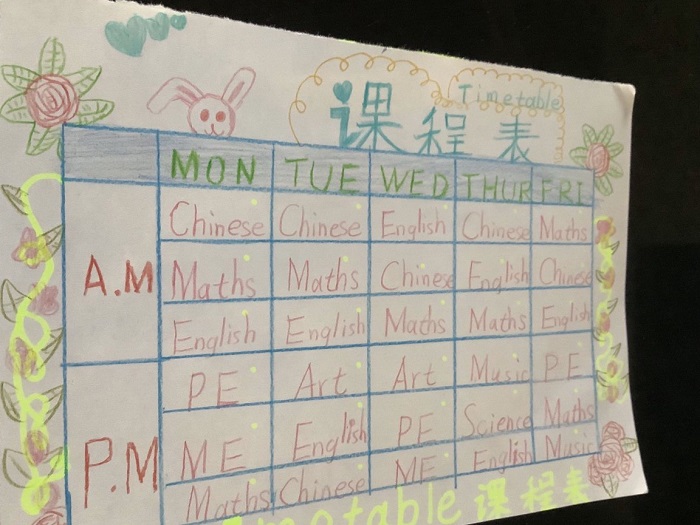 课程表 Timetable
MON TUE WED THUR FRI
Chinese Chinese English Chinese Maths
A.M Maths Maths Chinese English Chinese
English English Maths Maths English
PE Art Art Music PE
P.M ME English PE Science Maths
Maths Chinese ME English Music
课程表